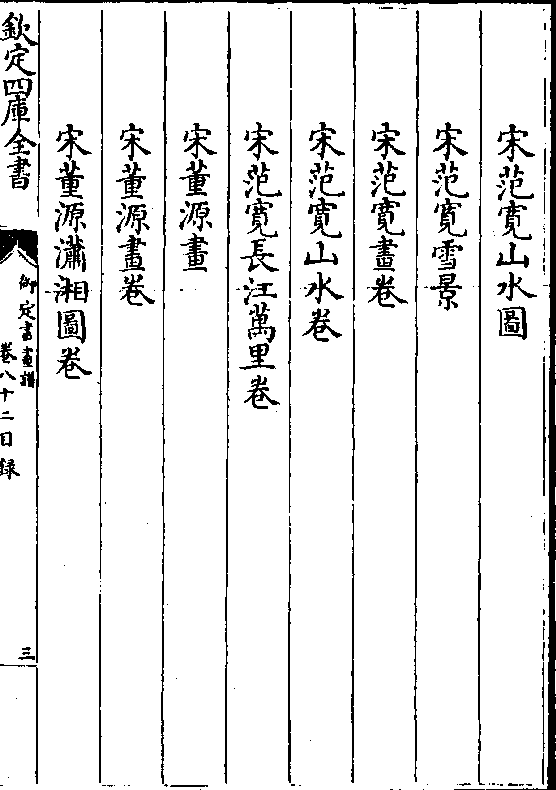 宋范寛山水圖
宋范寛雪景
宋范寛畫卷
宋范寛山水卷
宋范寛長江萬里卷
宋董源畫
宋董源畫卷
宋董源瀟湘圖卷
欽定四庫全書
御定書畫譜
卷八十二目録
三